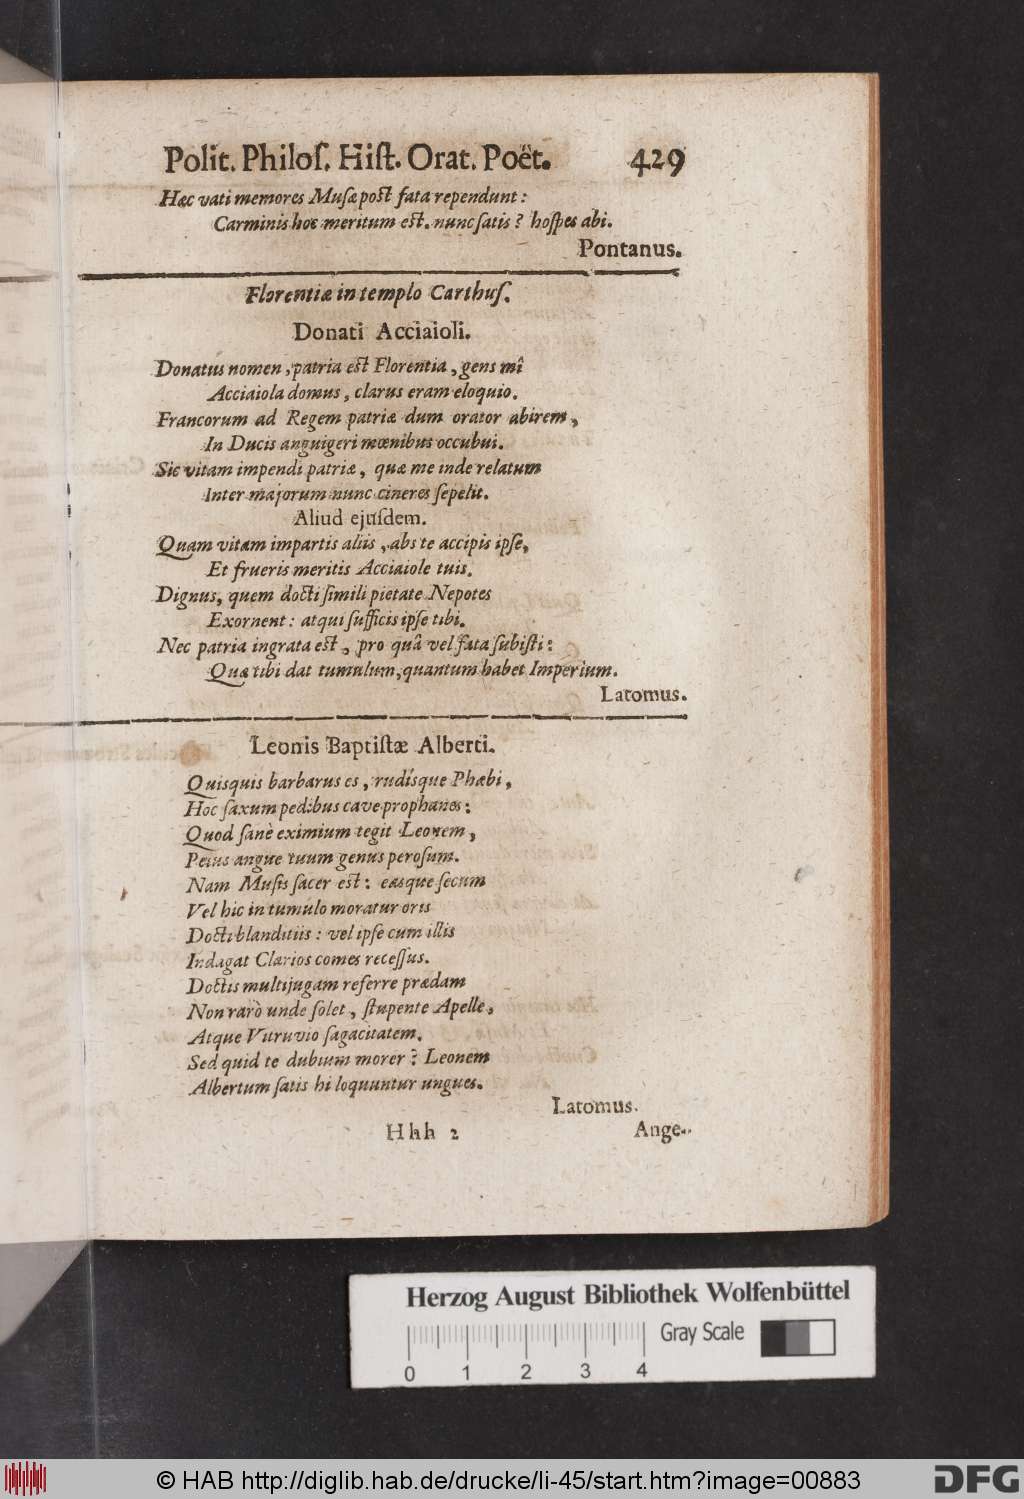 Polit. Philoſ. Hiſt. Orat. Poët. 429
Hæc vati memores Muſæ poſt fata rependunt:
Carminis hoc meritum eſt. nunc ſatis? hoſpes abi.
Pontanus.
Florentiæ in templo Carthuſ.
Donati Acciaioli.
Donatus nomen, patria eſt Florentia, gens mî
Acciaiola domus, clarus eram eloquio.
Francorum ad Regem patriæ dum orator abirem,
In Ducis anguigeri mœnibus occubui.
Sic vitam impendi patriæ, quæ me inde relatum
Inter majorum nunc cineres ſepelit.
Aliud ejuſdem.
Quam vitam impartis aliis, abs te accipis ipſe,
Et frueris meritis Acciaiole tuis.
Dignus, quem docti ſimili pietate Nepotes
Exornent: atqui ſufficis ipſe tibi.
Nec patria ingrata eſt, pro quâ vel fata ſubiſti:
Quæ tibi dat tumulum, quantum habet Imperium.
Latomus.
Leonis Baptiſtæ Alberti.
Quisquis barbarus es, rudisque Phœbi,
Hoc ſaxum pedibus cave prophanes:
Quod ſanè eximium tegit Leonem,
Peius angue tuum genus peroſum.
Nam Muſis ſacer eſt: easque ſecum
Vel hic in tumulo moratur oris
Docti blanditiis: vel ipſe cum illis
Indagat Clarios comes receſſus.
Doctis multijugam referre prædam
Non rarò unde ſolet, ſtupente Apelle,
Atque Vitruvio ſagacitatem.
Sed quid te dubium morer? Leonem
Albertum ſatis hi loquuntur ungues.
Latomus.
Hhh 2 Ange-
Herzog August Bibliothek Wolfenbüttel
Gray Scale
0 1 2 3 4
© HAB http://diglib.hab.de/drucke/li-45/start.htm?image=00883 DFG